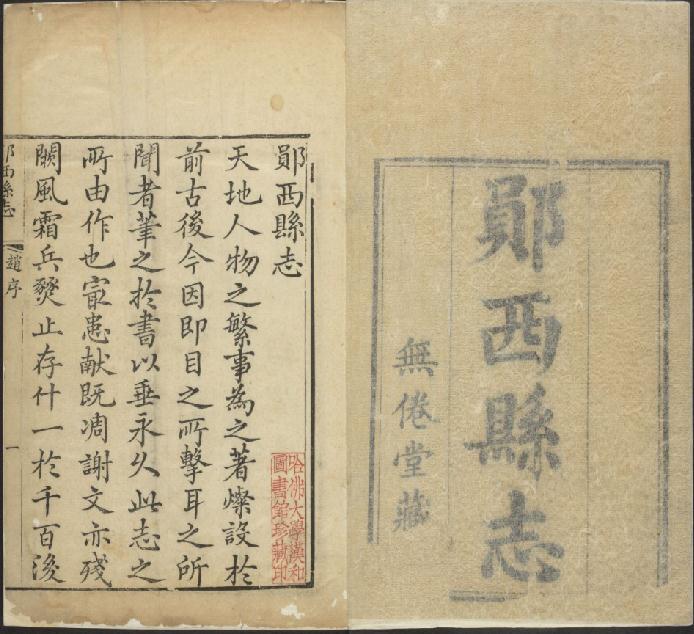 鄖西縣志
無倦堂藏
鄖西縣志
天地人物之繁事為之著燦設於
前古後今因即目之所擊耳之所
聞者筆之於書以垂永久此志之
所由作也寇患献既凋謝文亦殘
闕風霜兵燹止存什一於千百後
哈佛大學漢和
圖書館珍藏印
鄖西縣志
趙序
一